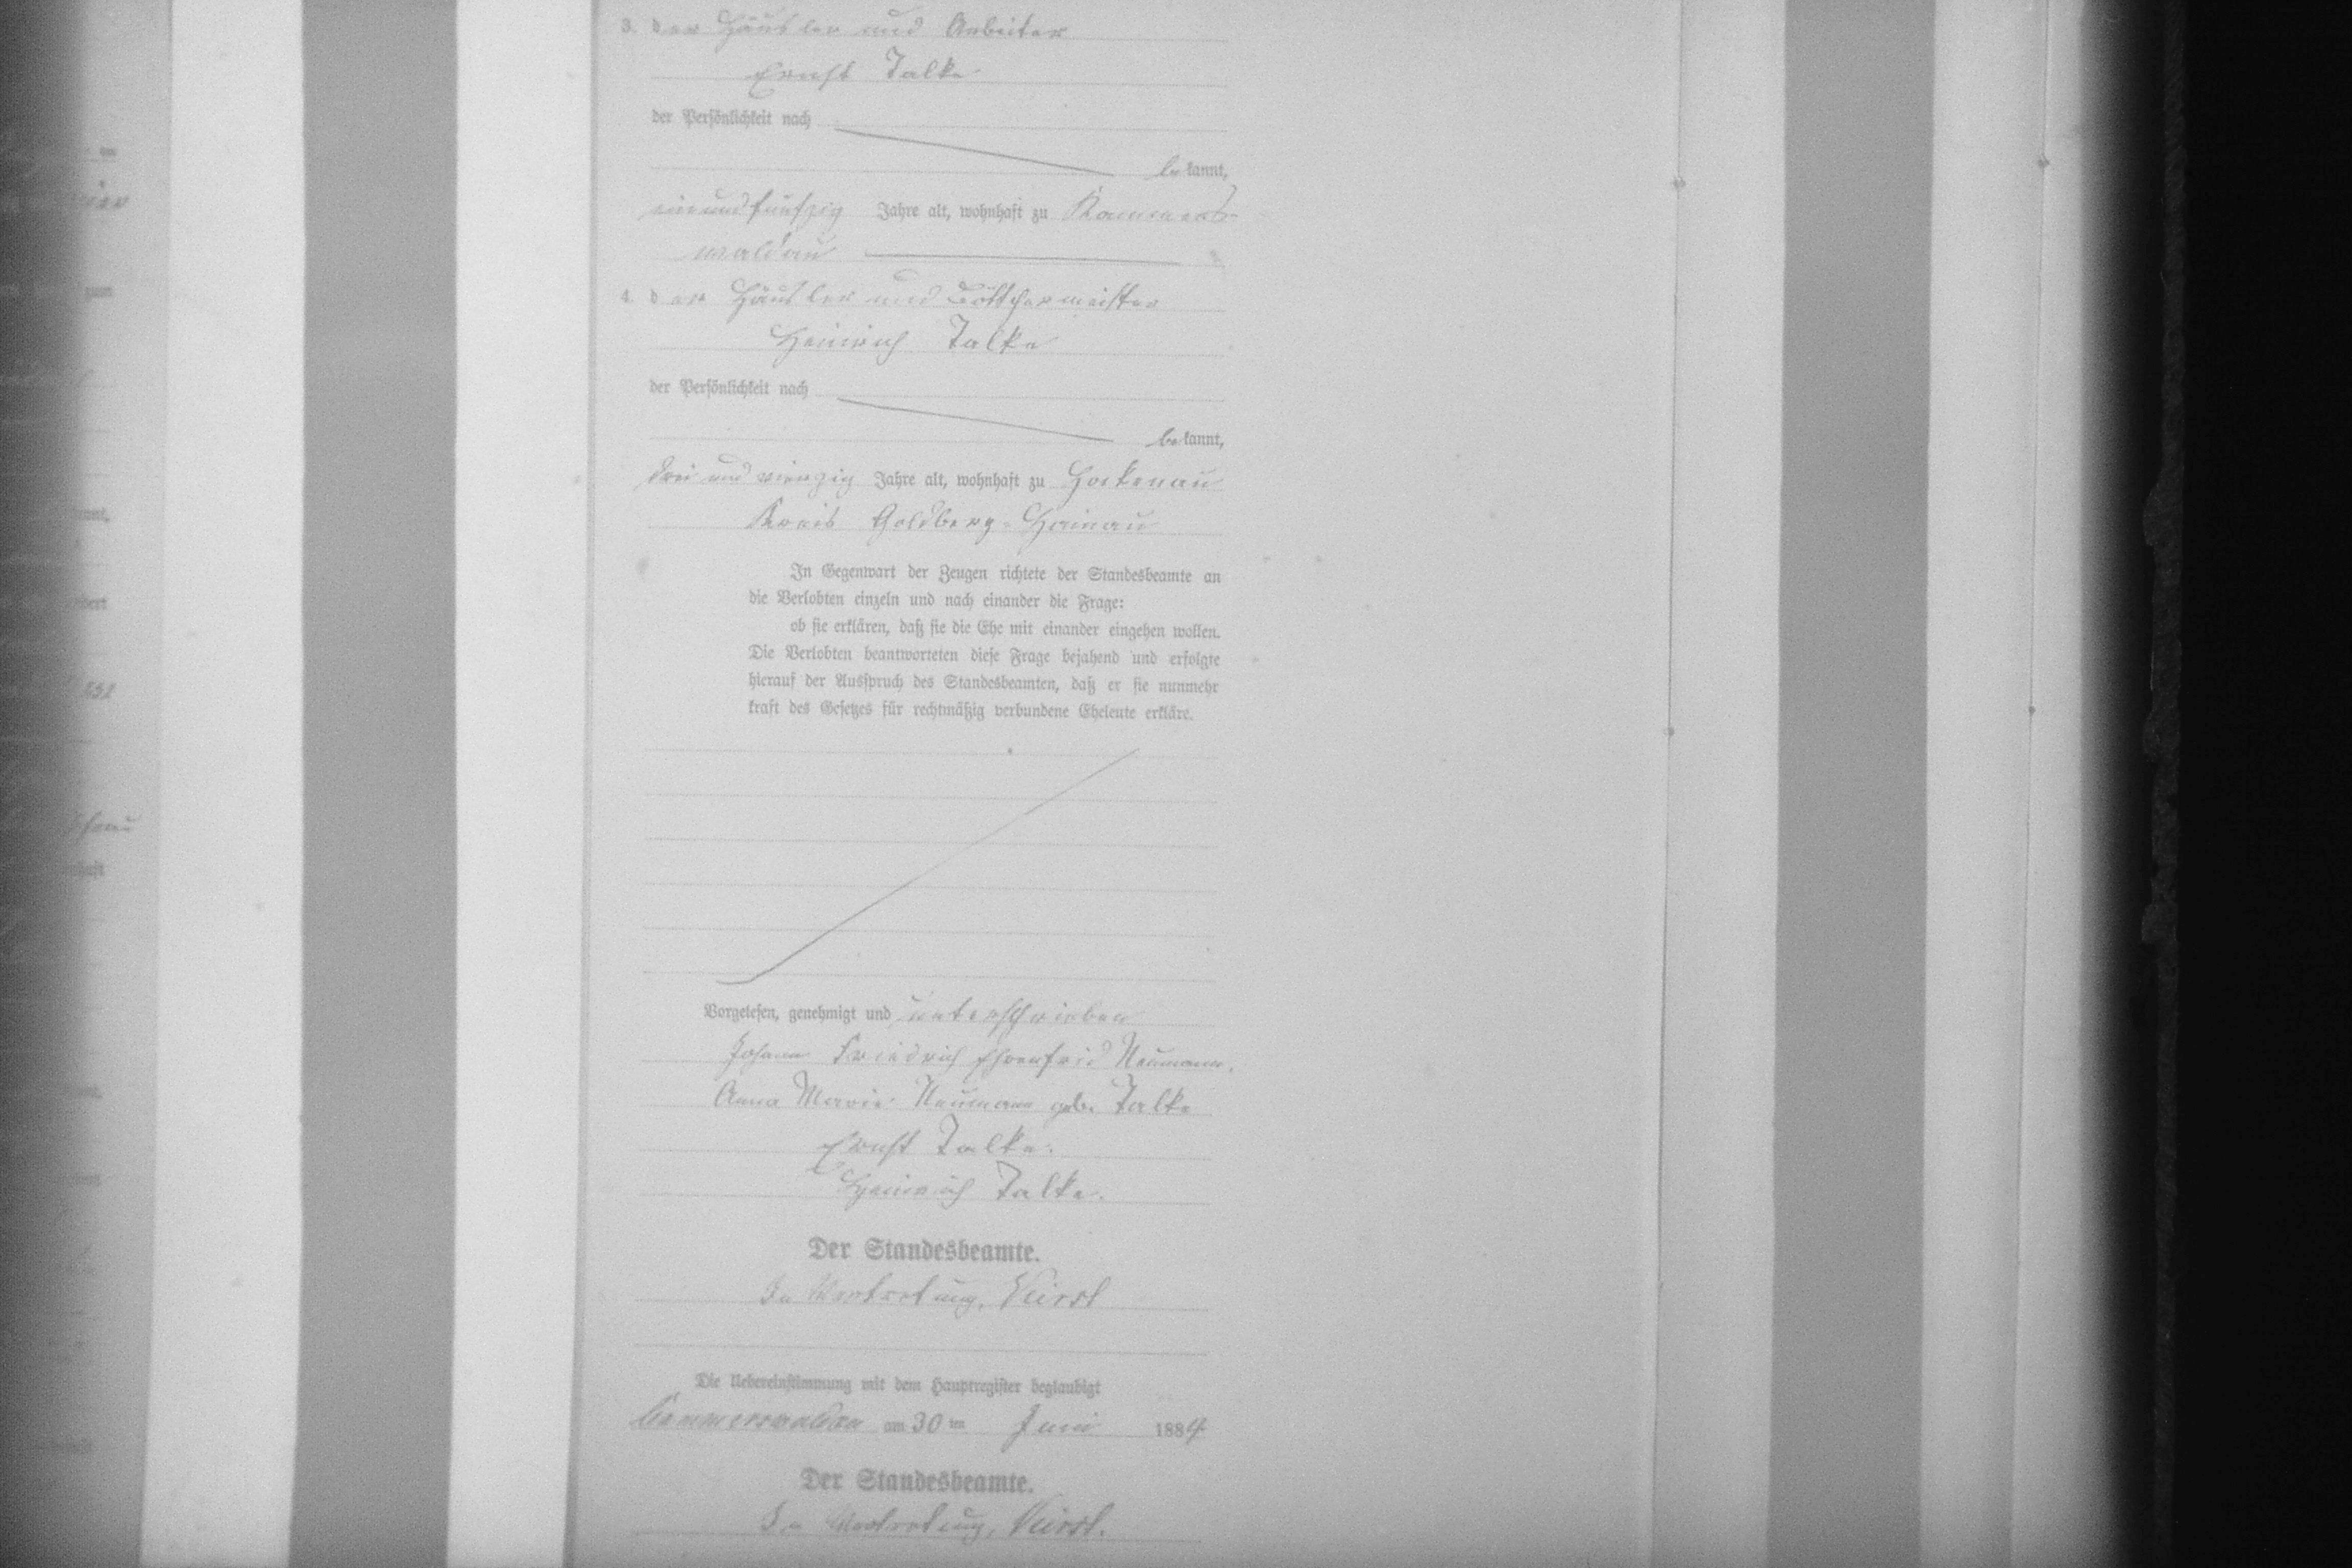 3. der Häusler und Arbeiter
Ernst Talke
der Persönlichkeit nach
bekannt,
einundfunfzig Jahre alt, wohnhaft zu Kammers-
waldau
4. der Häusler und Böttchermeister
Heinrich Talke
der Persönlichkeit nach
bekannt,
drei und vierzig Jahre alt, wohnhaft zu Hockenau
Kreis Goldberg-Hainau
In Gegenwart der Zeugen richtete der Standesbeamte an
die Verlobten einzeln und nach einander die Frage:
ob sie erklären, daß sie die Ehe mit einander eingehen wollen.
Die Verlobten beantworteten diese Frage bejahend und erfolgte
hierauf der Ausspruch des Standesbeamten, daß er sie nunmehr
kraft des Gesetzes für rechtmäßig verbundene Eheleute erkläre.
Vorgelesen, genehmigt und unterschrieben
Johann Friedrich Ehrenfrid Neumann.
Anna Marie Neumann geb. Talke
Ernst Talke.
Heinrich Talke.
Der Standesbeamte.
In Vertretung,
Die Uebereinstimmung mit dem Hauptregister beglaubigt
Kammerswaldau am 30 ten Juni 1884
Der Standesbeamte.
In Vertretung,